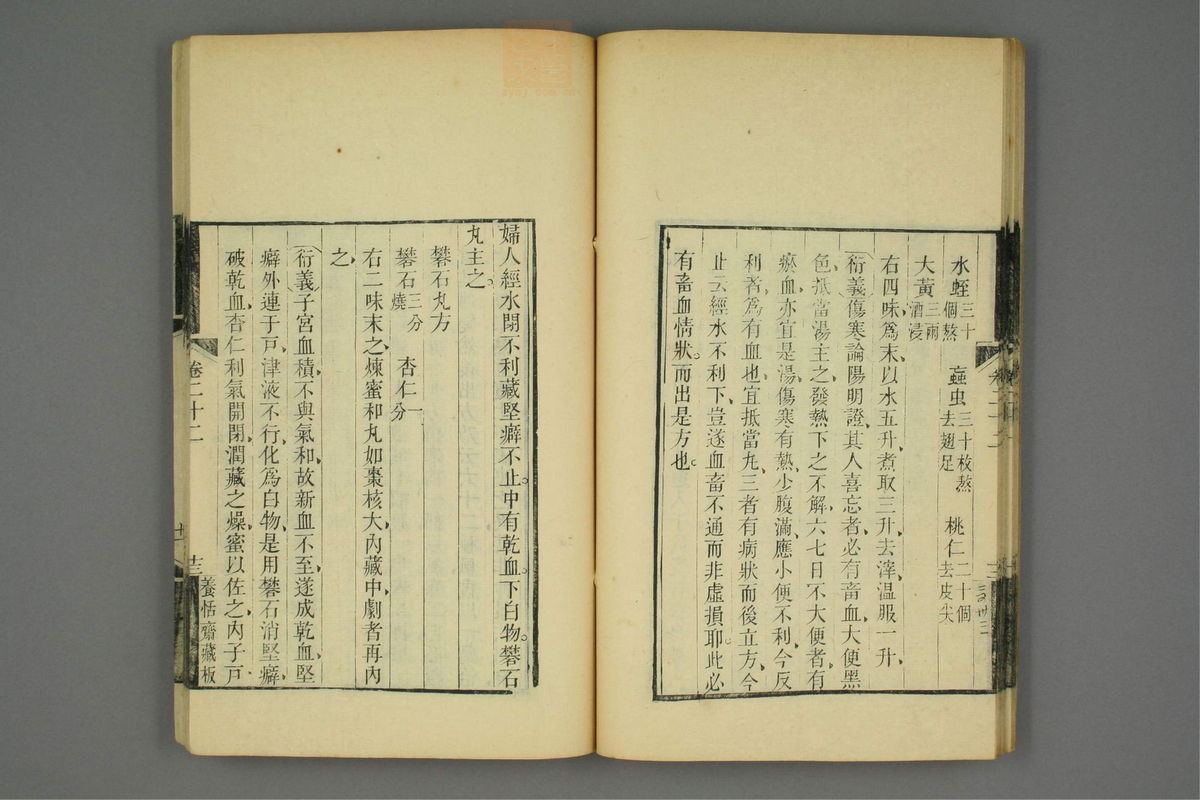 水蛭三十個熬 䖟虫三十枚熬去翅足 桃仁二十個去皮尖
大黃三兩酒浸
右四味爲末、以水五升、煮取三升、去滓、溫服一升、
衍義傷寒論陽明證、其人喜忘者、必有畜血、大便黑
色、抵當湯主之、發熱下之不解、六七日不大便者、有
瘀血、亦宜是湯、傷寒有熱、少腹滿、應小便不利、今反
利者、爲有血也、宜抵當丸、三者有病狀而後立方、今
止云經水不利下、豈遂血畜不通而非虛損耶。此必
有畜血情狀。而出是方也。
婦人經水閉不利藏堅癖不止。中有乾血。下白物。礬石
丸主之。
礬石丸方
礬石三分燒 杏仁一分
右二味末之、煉蜜和丸如棗核大、內藏中、劇者再內
之、
衍義子宮血積、不與氣和、故新血不至、遂成乾血、堅
癖外連于戸、津液不行、化爲白物、是用礬石消堅癖、
破乾血、杏仁利氣開閉、潤藏之燥、蜜以佐之、內子戸、
卷二十二
十三
養恬齋藏板